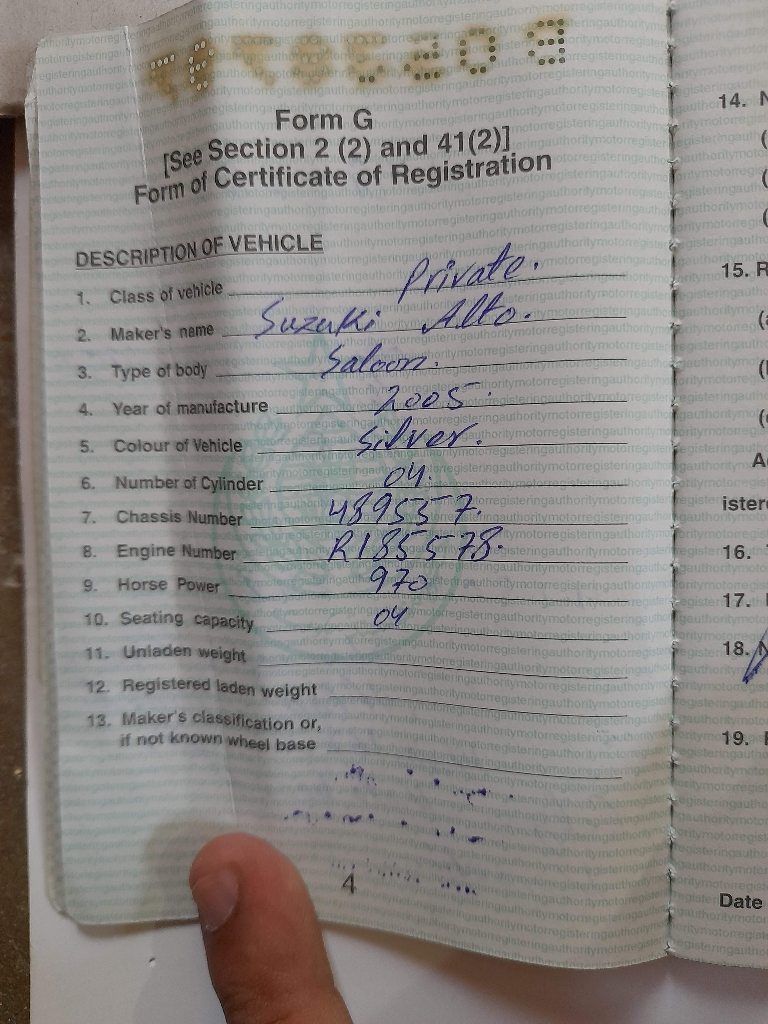 Form G
[See Section 2 (2) and 41(2)]
Form of Certificate of Registration
DESCRIPTION OF VEHICLE
1. Class of vehicle Private.
2. Maker's name Suzuki Alto.
3. Type of body Saloon.
4. Year of manufacture 2005.
5. Colour of Vehicle Silver.
6. Number of Cylinder 04.
7. Chassis Number 489557.
8. Engine Number R185578.
9. Horse Power 970
10. Seating capacity 04
11. Unladen weight
12. Registered laden weight
13. Maker's classification or,
if not known wheel base
4
14. N
(
(
(
15. R
(a
(
(
A
istere
16.
17.
18. N
19.
Date